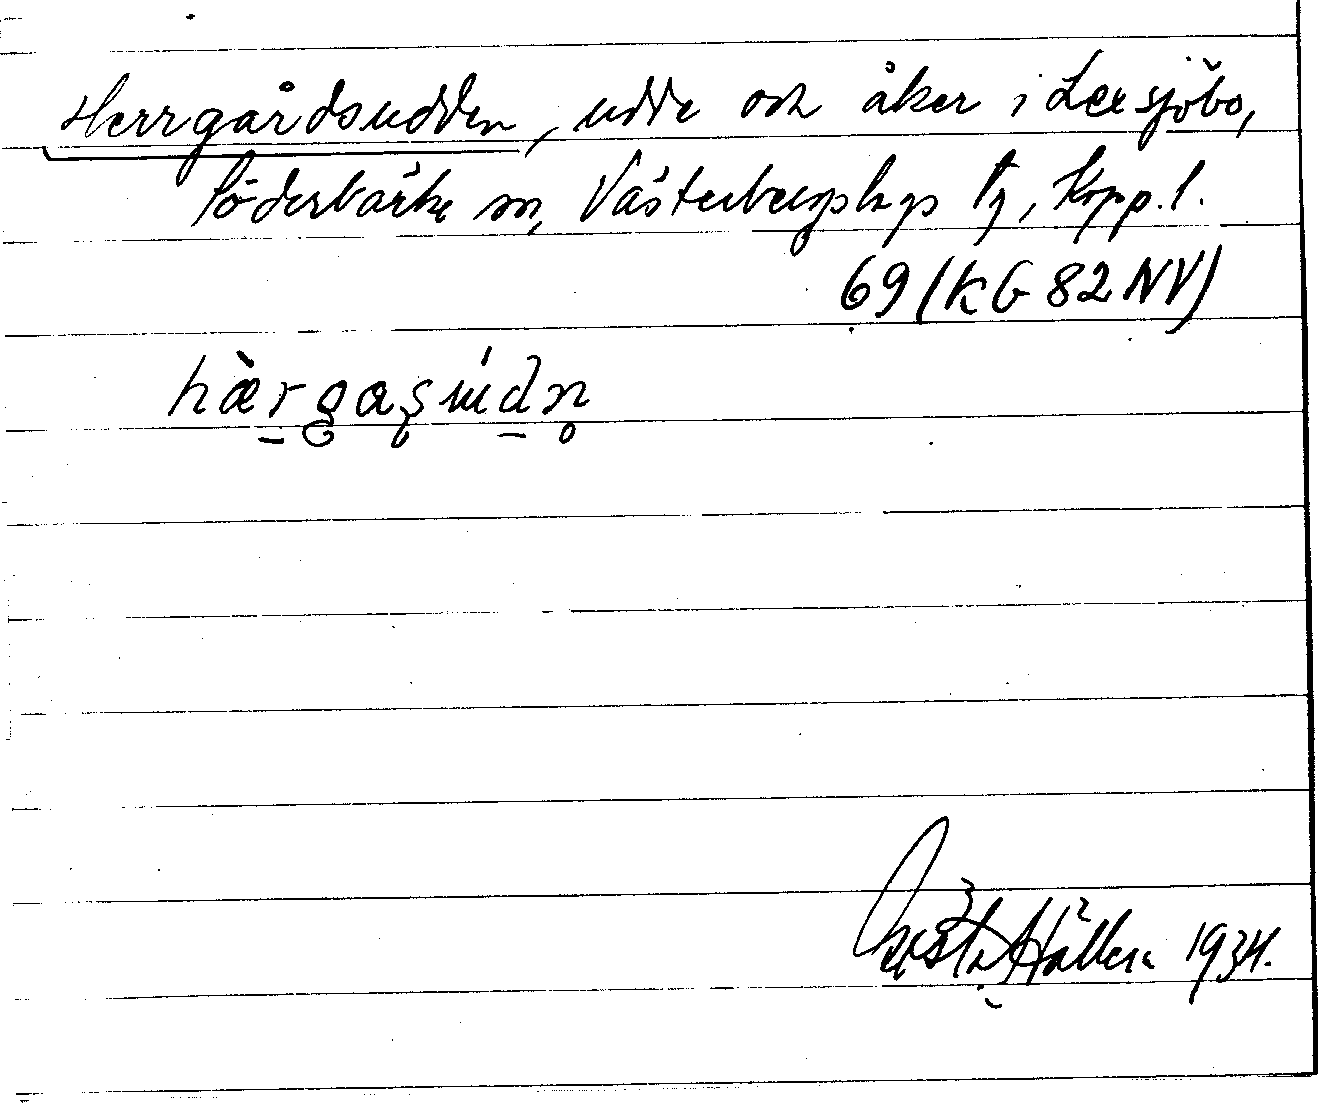 Herrgårdsudden, udde och åker i Lexsjöbo,
Söderbärke sn, Västerbergslags tg, Kopp. l.
69 (KG 82 NV)
hærgasudn
Gösta Hällen 1934.